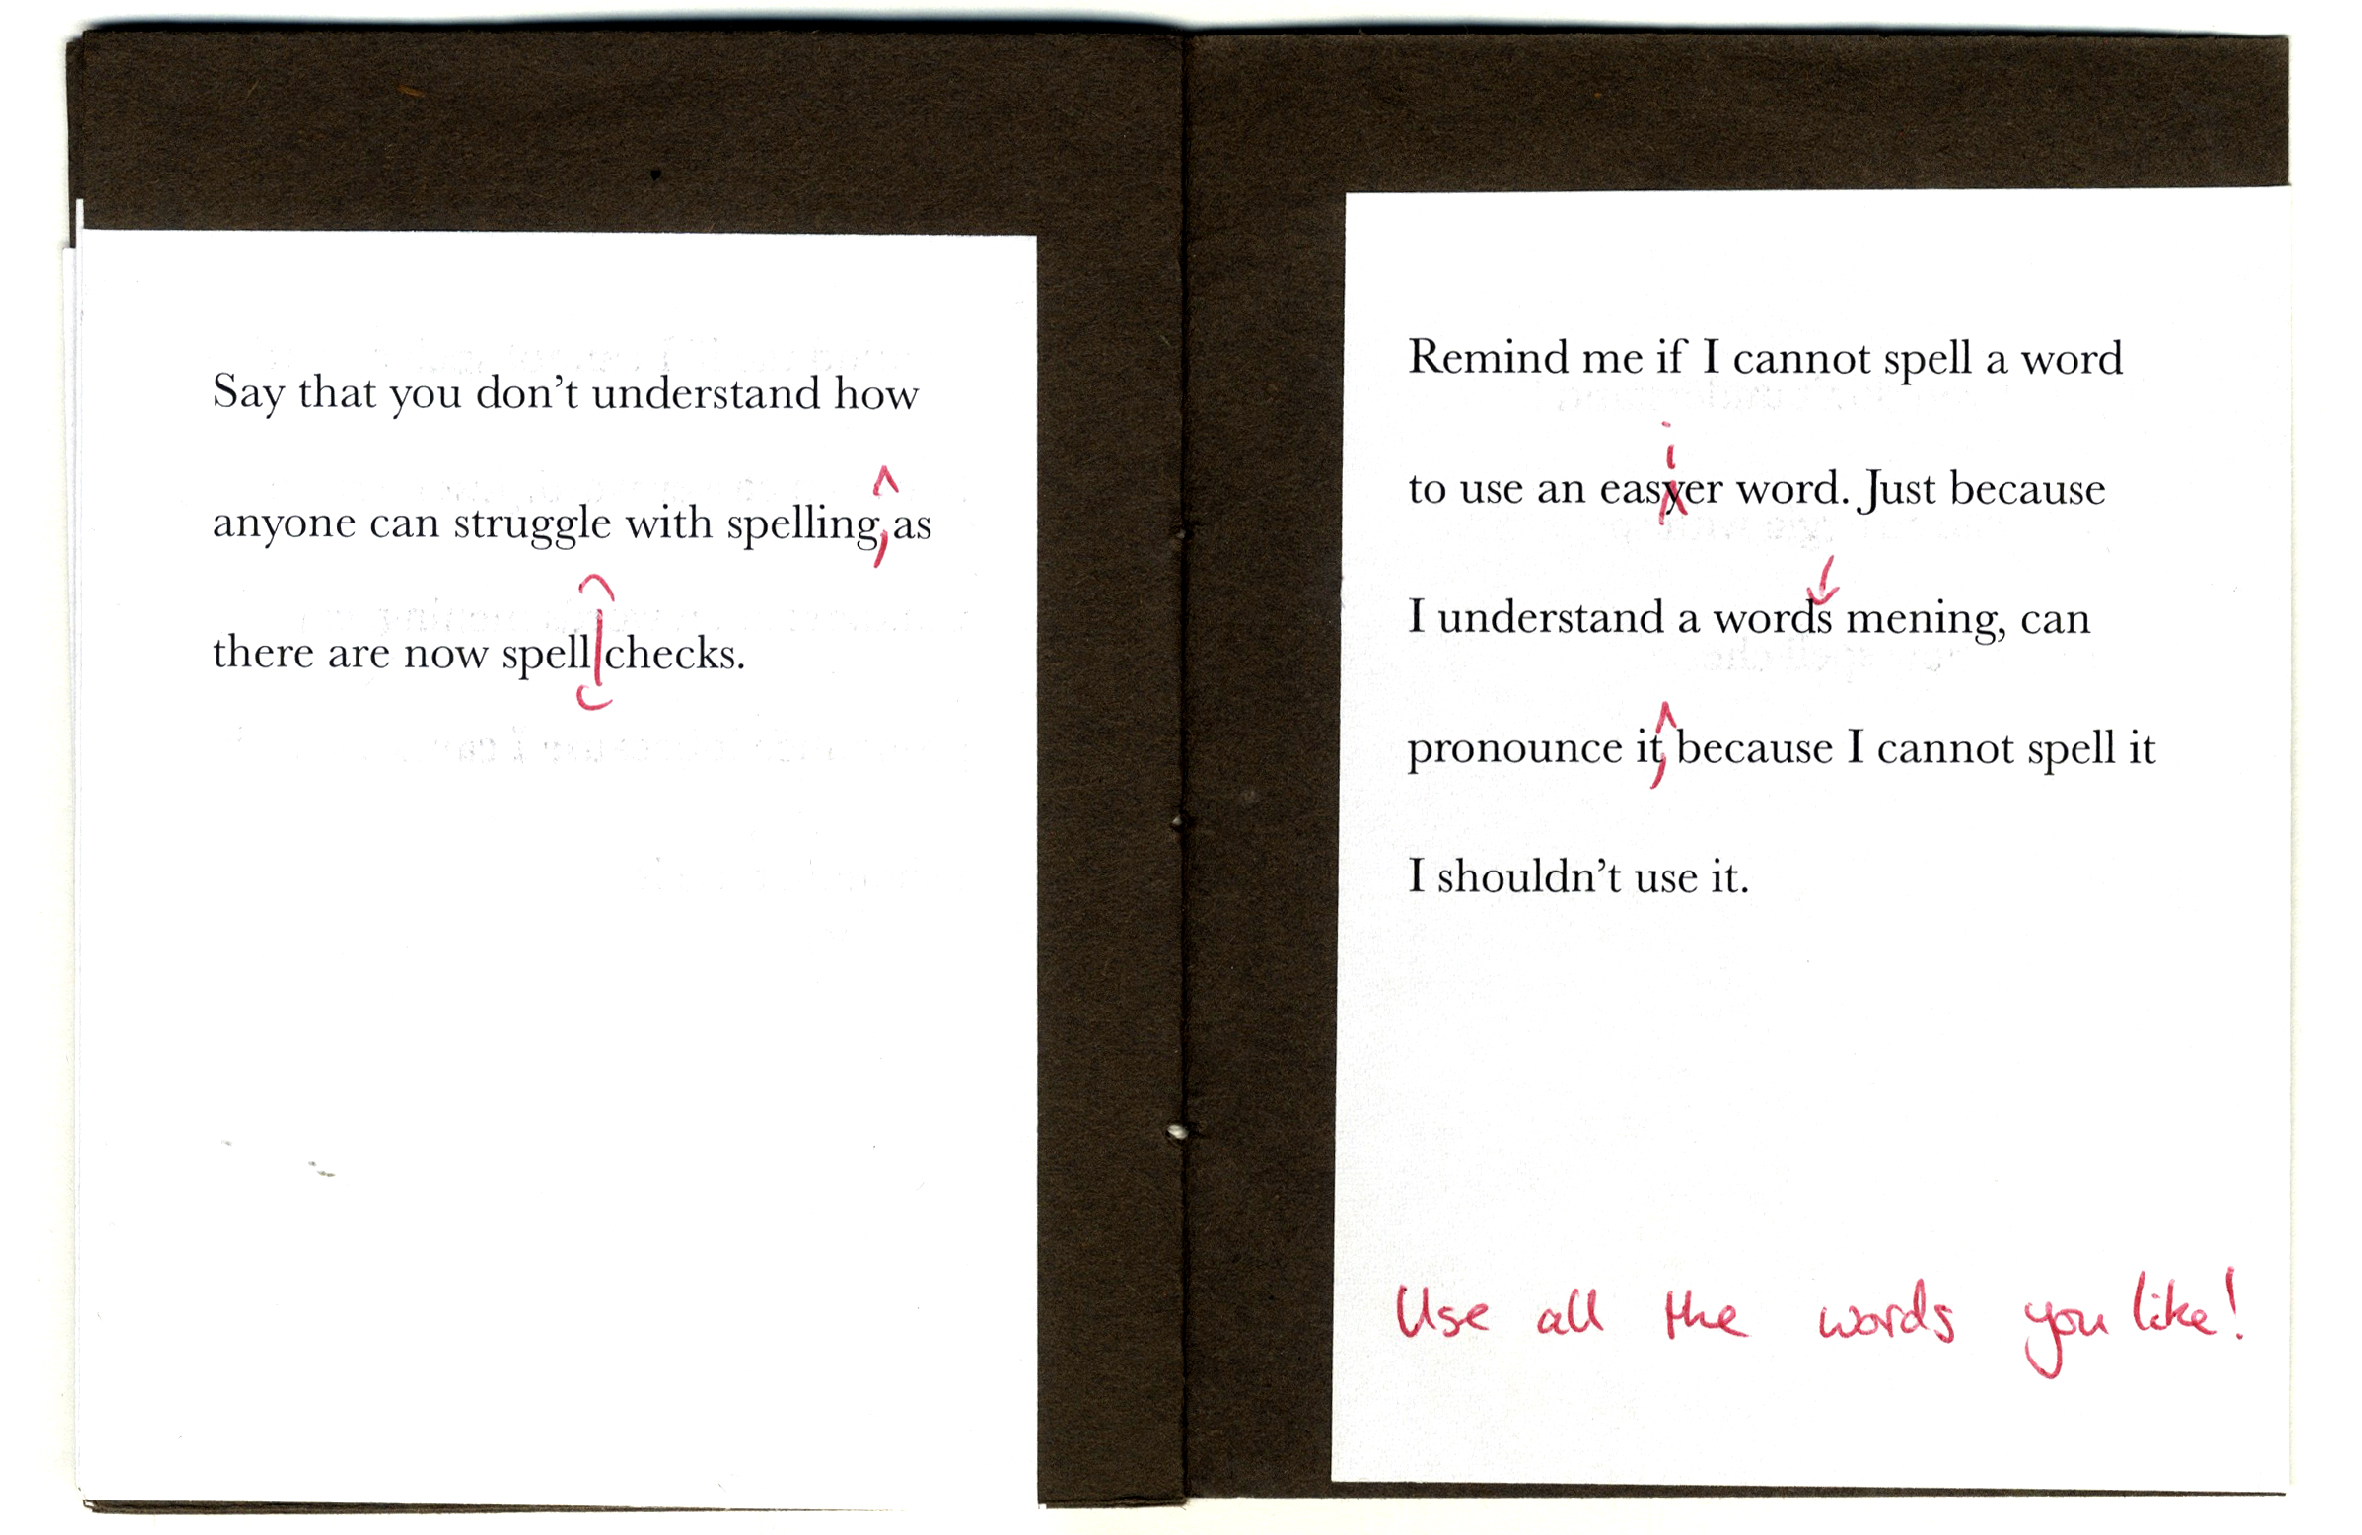 Say that you don't understand how
anyone can struggle with spelling, as
there are now spell checks.
Remind me if I cannot spell a word
i
to use an easyer word. Just because
I understand a words mening, can
pronounce it, because I cannot spell it
I shouldn't use it.
Use all the words you like!